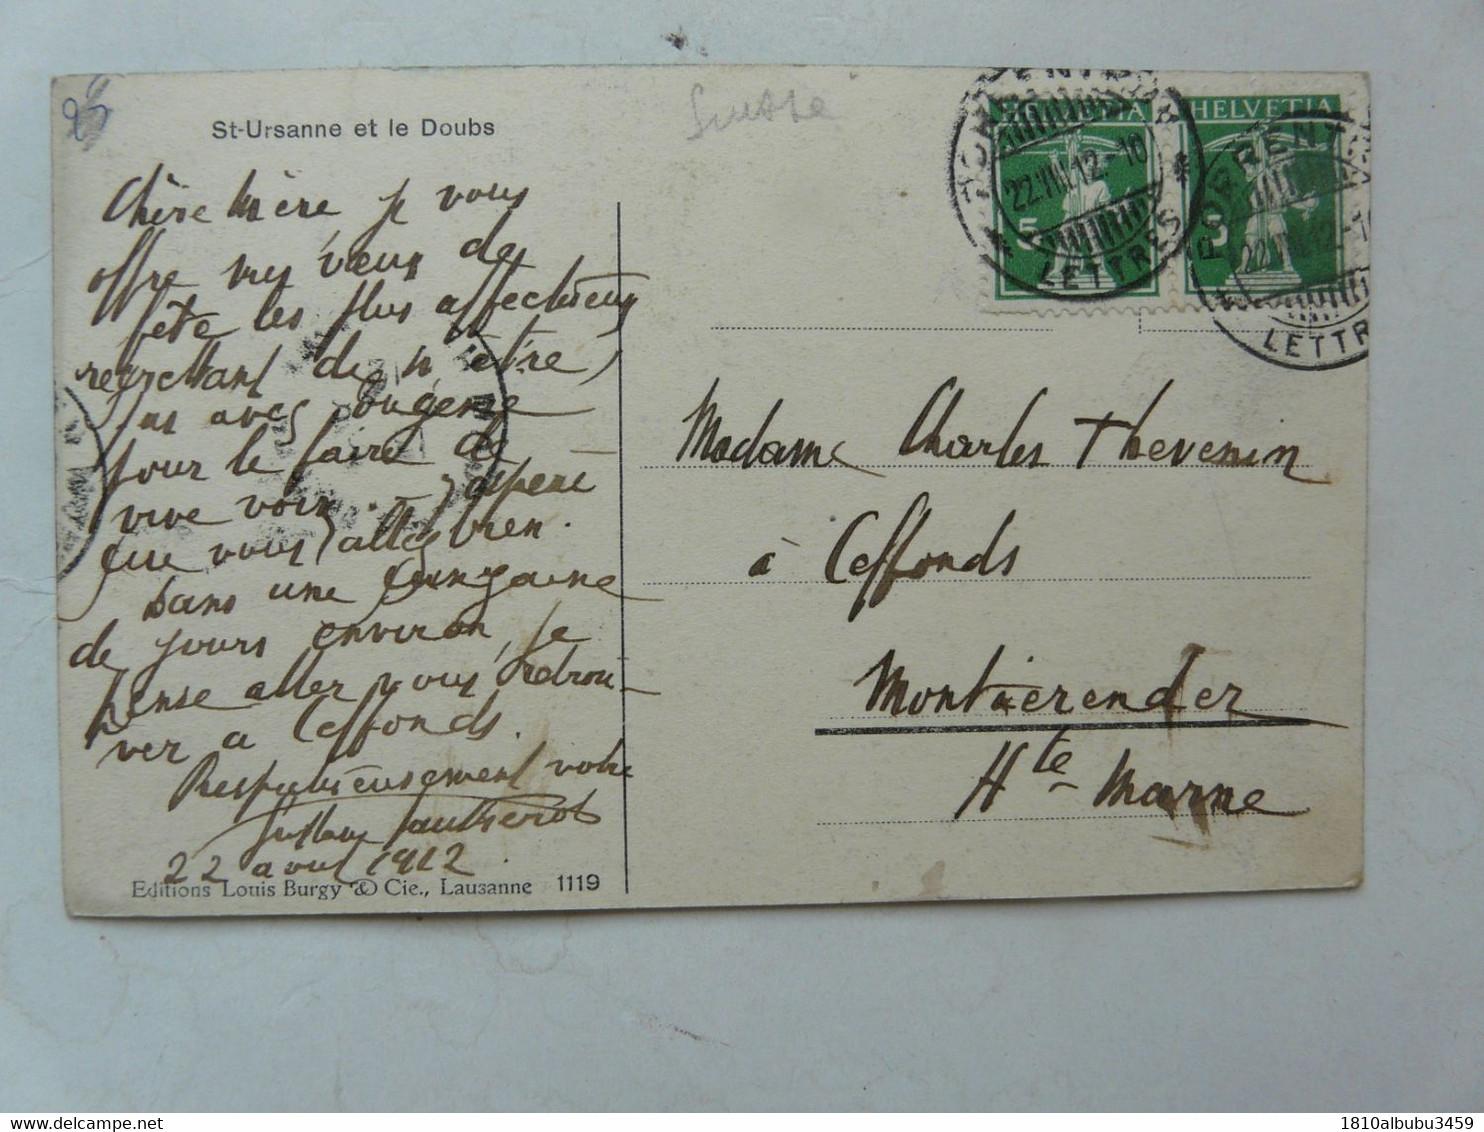 Suisse
St-Ursanne et le Doubs
HELVETIA
22.VIII.12.-10
5
LETTRES
PORRENT
LETTR
Chère Mère je vous
offre mes vœux de
fête les plus affectueux
regrettant de n'être
pas avec Eugenie
pour le faire de
vive voix. J'éspère
que vous allez bien.
Dans une quinzaine
de jours environ, je
pense aller vous retrou-
ver a Ceffonds.
Respectueusement votre
22 aout 1912
Editions Louis Burgy & Cie., Lausanne 1119
Madame Charles Thevenin
à Ceffonds
Montierender
Hte-Marne
delcampe.net
1810albubu3459